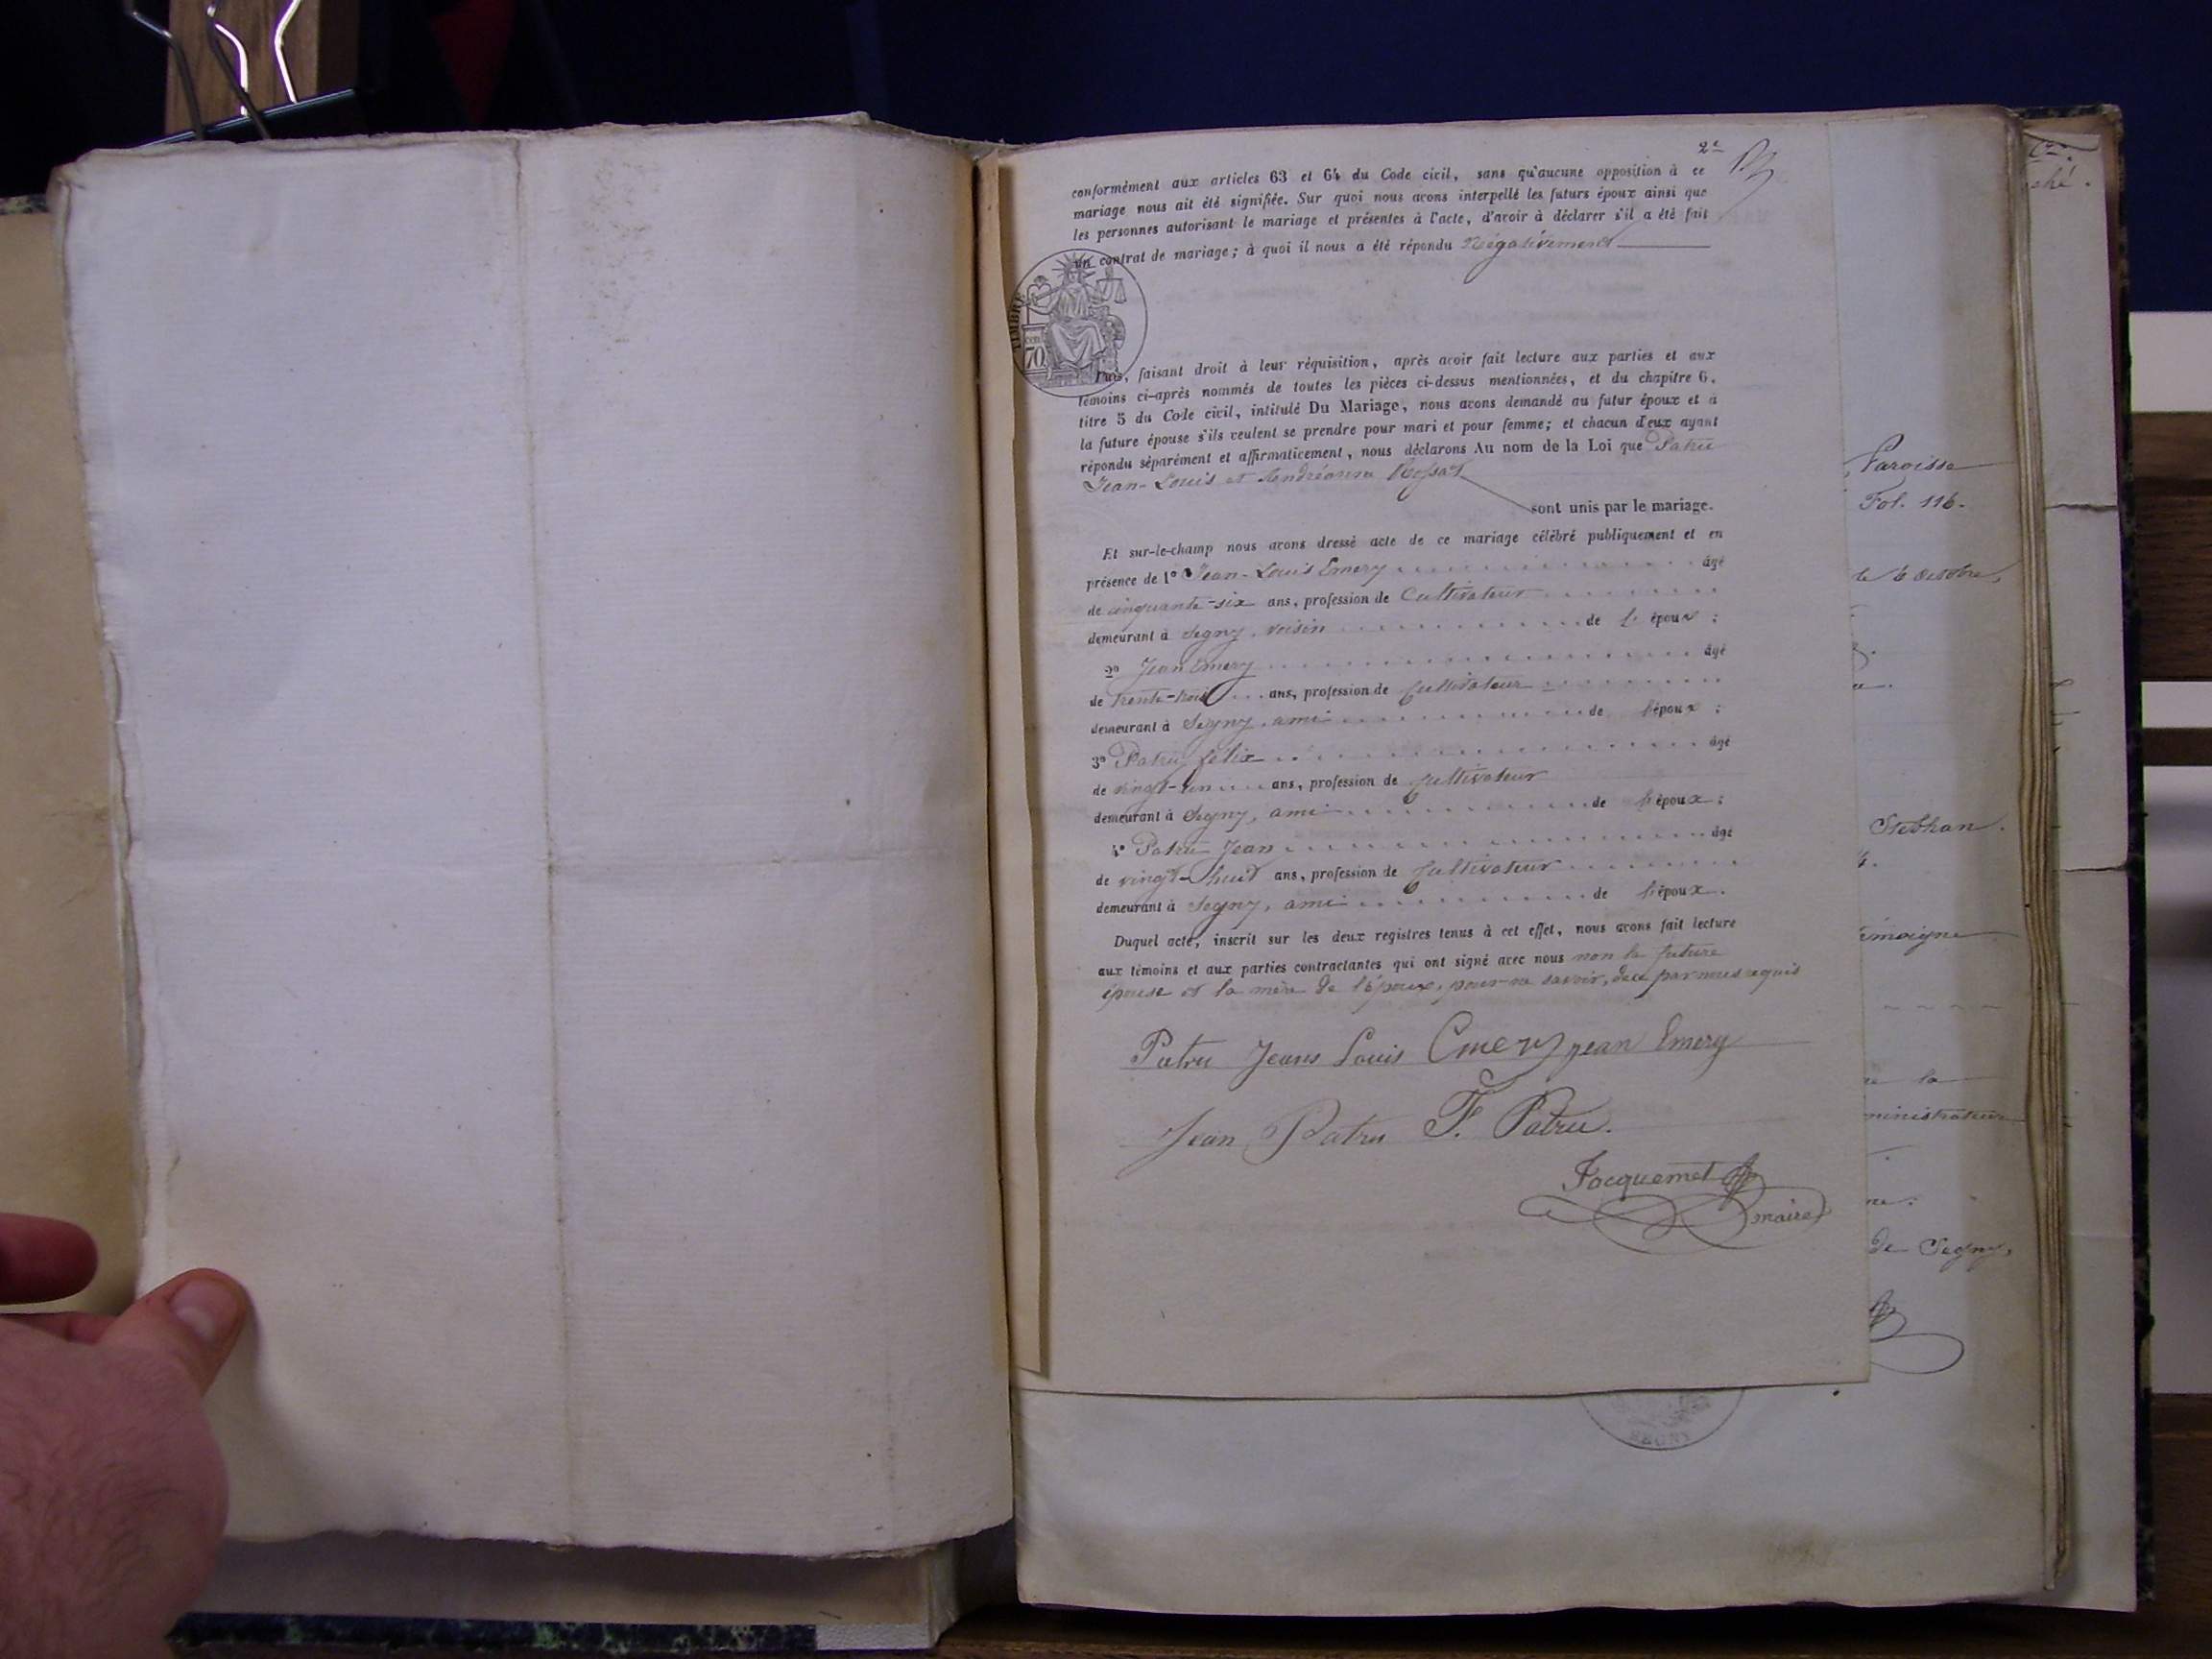 2e
conformément aux articles 63 et 64 du Code civil, sans qu'aucune opposition à ce
mariage nous ait été signifiée. Sur quoi nous avons interpellé les futurs époux ainsi que
les personnes autorisant le mariage et présentes à l'acte, d'avoir à déclarer s'il a été fait
un contrat de mariage; à quoi il nous a été répondu Négativement
TIMBRE
70
Puis, faisant droit à leur réquisition, après avoir fait lecture aux parties et aux
témoins ci-après nommés de toutes les pièces ci-dessus mentionnées, et du chapitre 6,
titre 5 du Code civil, intitulé Du Mariage, nous avons demandé au futur époux et à
la future épouse s'ils veulent se prendre pour mari et pour femme; et chacun d'eux ayant
répondu séparément et affirmativement, nous déclarons Au nom de la Loi que Patru
Jean-Louis et Andréanne
sont unis par le mariage.
Et sur-le-champ nous avons dressé acte de ce mariage célébré publiquement et en
présence de 1° Jean-Louis Emery âgé
de cinquante-six ans, profession de Cultivateur
demeurant à Segny, voisin de l'époux;
2° Jean Emery âgé
de trente-trois ans, profession de Cultivateur
demeurant à Segny, ami de l'époux;
3° Patru félix âgé
de vingt-un ans, profession de Cultivateur
demeurant à Segny, ami de l'époux;
4° Patru Jean âgé
de vingt-huit ans, profession de Cultivateur
demeurant à Segny, ami de l'époux.
Duquel acte, inscrit sur les deux registres tenus à cet effet, nous avons fait lecture
aux témoins et aux parties contractantes qui ont signé avec nous non la future
épouse et la mère de l'époux, pour ne savoir, de ce par nous requis
Patru Jean Louis Emery jean Emery
Jean Patru F. Patru.
Jacquemet
maire
Paroisse
Fol. 116.
le 6 octobre,
Stebhan.
émoigne
la
ministrateur
de Segny,
SEGNY
ché.